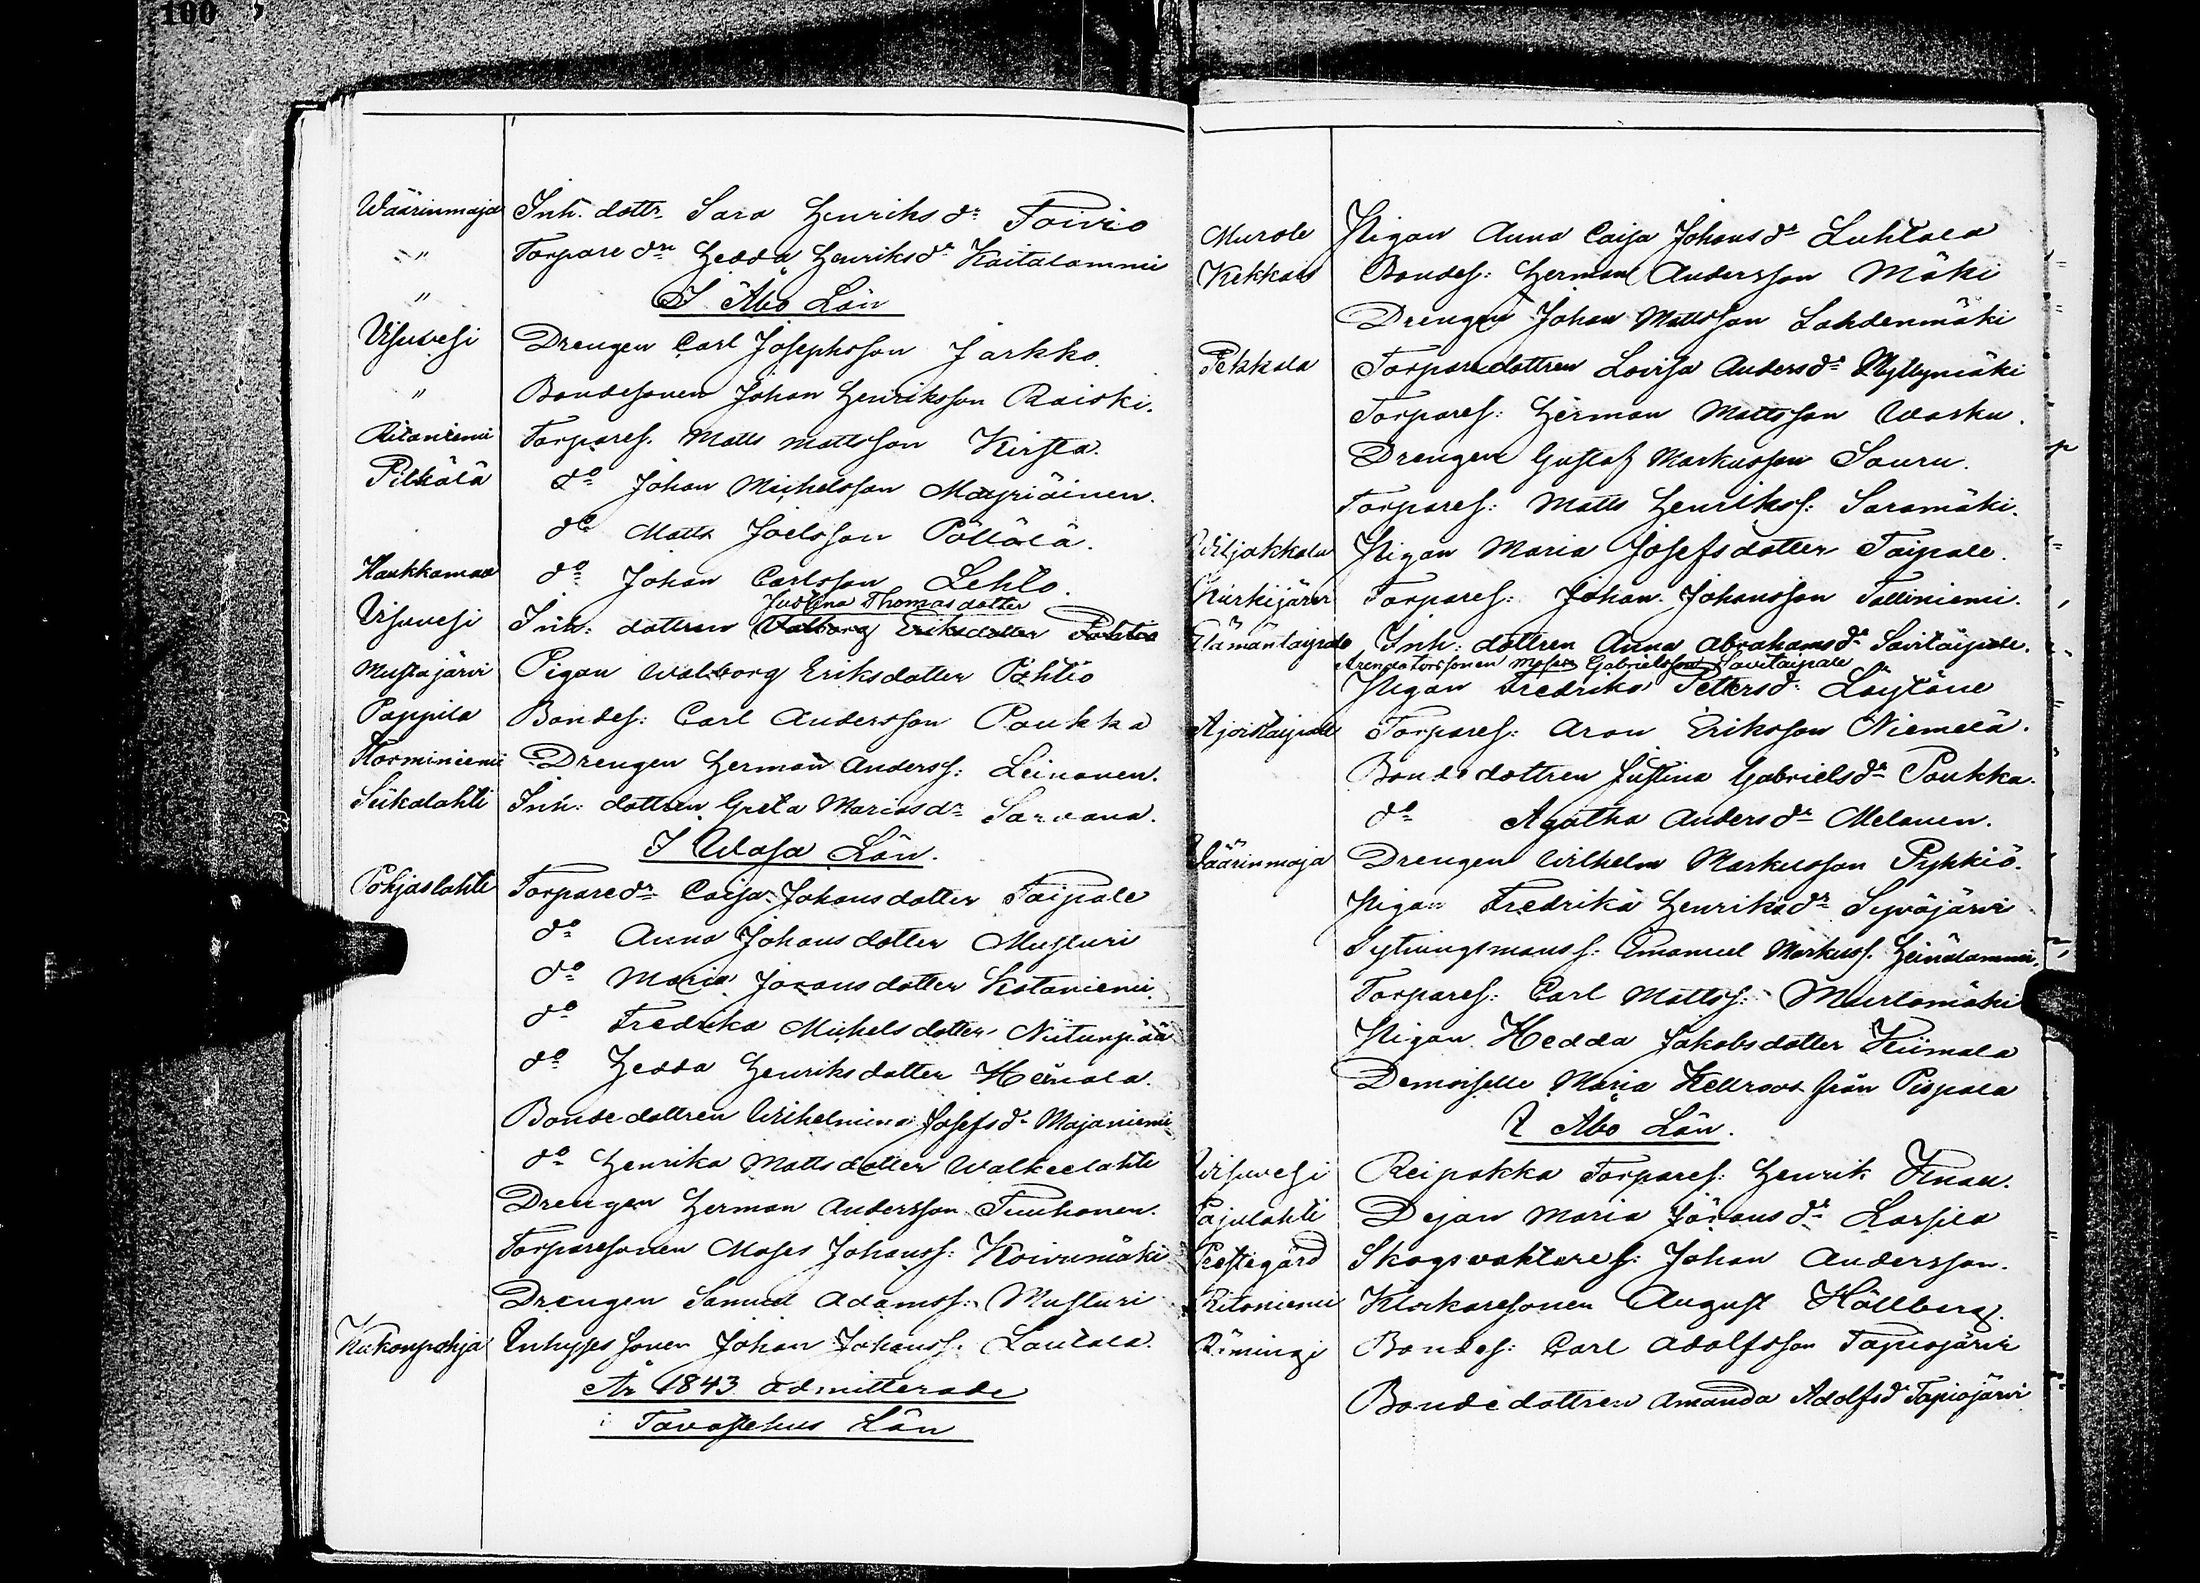 100
Wäärinmaja Inh. dottr. Sara Henriksdr Toivio
" Torparedrn Hedda Henriksdr Kaitalammi
" I Åbo Län
Wisuvesi Drengen Carl Josephsson Jarkko.
" Bondesonen Johan Henriksson Raiski.
Ritaniemi Torpares. Matts Mattsson Kirsta.
Pilkälä do Johan Michelsson Mäyriäinen.
do Matts Joelsson Pöllälä.
Haukkamaa do Johan Carlsson Lehto.
Judlina Thomasdotter
Wisuvesi Inh: dottren Valborg Eriksdotter Pohtio
Mustajärvi Pigan Walborg Eriksdotter Pohtio
Pappila Bondes: Carl Andersson Poukka
Korminiemi Drengen Herman Anderss: Leinonen.
Siikalahti Inh: dottren Greta Mariasdr Sarvana.
I Wasa Län.
Pohjaslahti Torparedr Caisa Johansdotter Taipale
do Anna Johansdotter Musturi
do Maria Johansdotter Kotaniemi
do Fredrika Michelsdotter Niitunpää
do Hedda Henriksdotter Heinola.
Bondedottren Wilhelmina Josefsdr Majaniemi
do Henrika Mattsdotter Walkeelahti
Drengen Herman Andersson Tuuhonen.
Torparesonen Moses Johanss: Koivumäki
Drengen Samuel Adamss: Musturi
Kukonpohja Inhysessonen Johan Johanss. Lautala.
År 1843 admitterade
i Tavastehus Län
Murole Pigan Anna Caisa Johansdr Luhtala
Kekkois Bondes: Herman Andersson Mäki
Drengen Johan Mattsson Lahdenmäki
Pekkala Torparedottren Lovisa Andersdr Myllymäki
Torpares: Herman Mattsson Wasku.
Drengen Gustaf Markusson Sauru.
Torpares: Matts Henrikss: Saramäki.
Wiljakkala Pigan Maria Josefsdotter Taipale.
Kurkijärvi Torpares: Johan Johansson Talliniemi.
Elämäntaipale Inh: dottren Anna Abrahamsdr Savitaipale.
Arendatorssonen Moses Gabrielsson Savitaipale
Pigan Fredrika Pettersdr Löytäne
Ajostaipale Torpares: Aron Eriksson Niemelä.
Bondedottren Justina Gabrielsdr Poukka.
do Agatha Andersdr Melanen.
Wäärinmaja Drengen Wilhelm Markusson Pykkiö.
Pigan Fredrika Henriksdr Syväjärvi
Sytningsmanss: Emanuel Markuss. Heinälammi.
Torpares: Carl Mattss: Murtomäki
Pigan Hedda Jakobsdotter Kiimala
Demoiselle Maria Hellroos från Pispala
I Åbo Län.
Wisuvesi Reipakka Torpares: Henrik Knau.
Pajulahti Dejan Maria Johansdr Lassila
Prestegård Skogsvaktares: Johan Andersson.
Ritoniemi Klockaresonen August Hällberg.
Rämingi Bondes: Carl Adolfsson Tapiojärvi
Bondedottren Amanda Adolfsdr Tapiojärvi